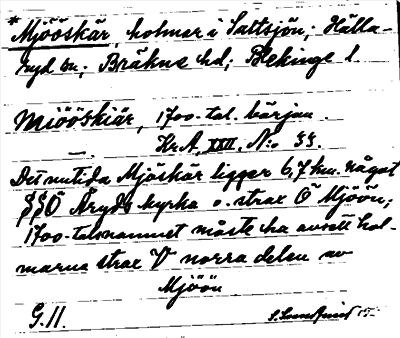 * Mjööskär, holmar i Saltsjön; Hälla-
ryd sn; Bräkne hd; Blekinge l.
Miööskiär, 1700-tal. början.
—. Kr.A, XXII. N:o 33.
Det nutida Mjöskär ligger 6,7 km. något
SSÖ Åryds kyrka o. strax Ö Mjöön;
1700-talsnamnet måste ha avsett hol-
marna strax V norra delen av
Mjöön
G. 11.